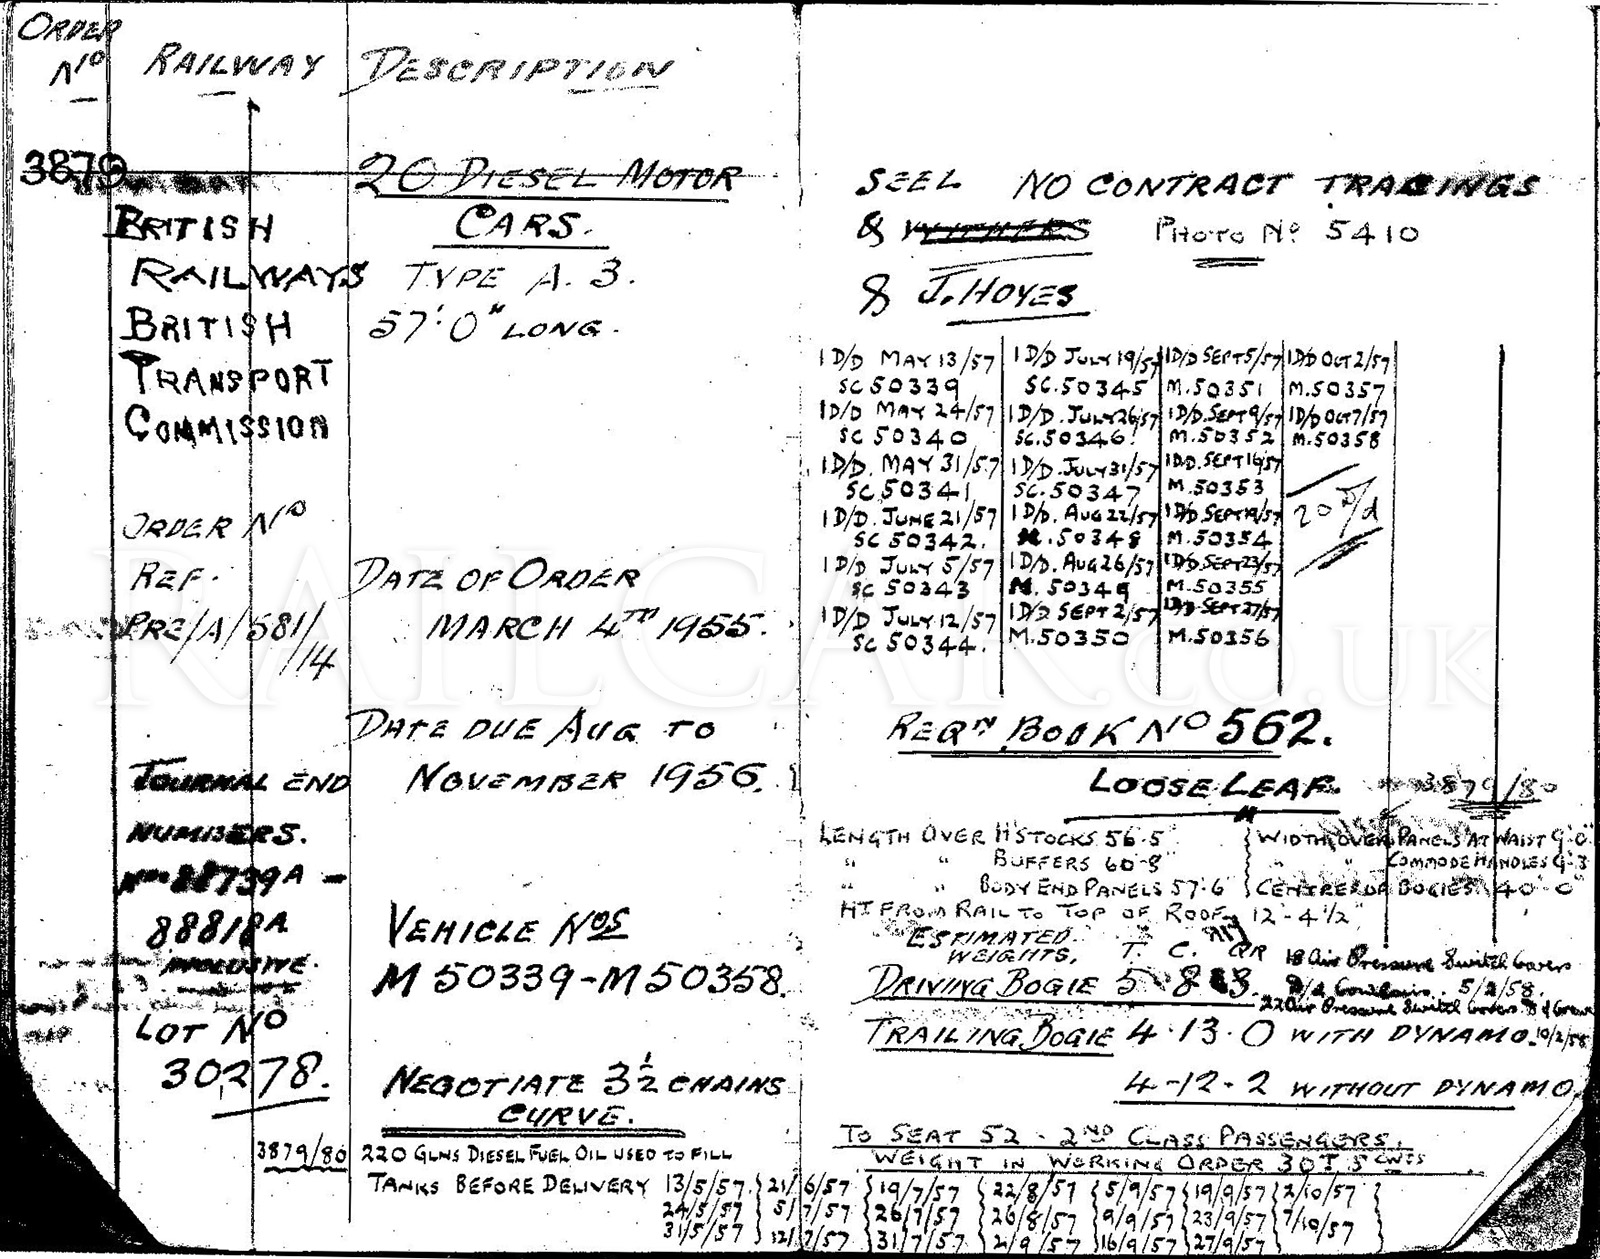 ORDER
Nº
RAILWAY
DESCRIPTION
3879
20 DIESEL MOTOR
CARS.
BRITISH
RAILWAYS
BRITISH
TRANSPORT
COMMISSION
TYPE A. 3.
57'.0" LONG.
ORDER Nº
REF.
PRE/A/581/
/14
DATE OF ORDER
MARCH 4TH 1955.
DATE DUE AUG TO
NOVEMBER 1956.
JOURNAL END
NUMBERS.
88739A -
88818A
INCLUSIVE.
LOT Nº
30278.
VEHICLE NOS
M 50339-M50358.
NEGOTIATE 3½ CHAINS
CURVE.
3879/80
220 GLNS DIESEL FUEL OIL USED TO FILL
TANKS BEFORE DELIVERY
13/5/57. 21/6/57 19/7/57 22/8/57 5/9/57 19/9/57 2/10/57
24/5/57 5/7/57 26/7/57 26/8/57 9/9/57 23/9/57 7/10/57
31/5/57 12/7/57 31/7/57 2/9/57 16/9/57 27/9/57
SEEL NO CONTRACT TRACINGS
& WITHERS PHOTO Nº 5410
& J. HOYES
1 D/D MAY 13/57
SC 50339
1 D/D MAY 24/57
SC 50340
1 D/D. MAY 31/57
SC 50341
1 D/D. JUNE 21/57
SC 50342.
1 D/D JULY 5/57
SC 50343
1 D/D JULY 12/57
SC 50344.
1 D/D JULY 19/57
SC.50345
1 D/D. JULY 26/57
SC.50346.
1 D/D. JULY 31/57
SC.50347
1 D/D. AUG 22/57
M.50348
1 D/D. AUG 26/57
M.50349
1 D/D SEPT 2/57
M.50350
1 D/D SEPT 5/57
M.50351
1 D/D. SEPT 9/57
M.50352
1 D.D. SEPT 16/57
M.50353
1 D/D SEPT 19/57
M.50354
1 D/D SEPT 23/57
M.50355
1 D/D SEPT 27/57
M.50356
1 D/D OCT 2/57
M.50357
1 D/D OCT 7/57
M.50358
20 D/d
REQN. BOOK Nº 562.
LOOSE LEAF.
3879/80
LENGTH OVER H'STOCKS 56-5"
" " BUFFERS 60-8"
" " BODY END PANELS 57-6"
HT FROM RAIL TO TOP OF ROOF 12'-4½"
WIDTH OVER PANELS AT WAIST 9'-0"
" " COMMODE HANDLES 9-3
CENTRES OF BOGIES 40'-0"
ESTIMATED
WEIGHTS. T. C. QR
DRIVING BOGIE 5 8 3.
TRAILING BOGIE 4.13.0 WITH DYNAMO.
4-12-2 WITHOUT DYNAMO
18 Air Pressure Switch Covers
D/d Cowlairs. 5/2/58.
22 Air Pressure Switch Covers
10/2/58
TO SEAT 52 - 2ND CLASS PASSENGERS.
WEIGHT IN WORKING ORDER 30T. 5 CWTS
RAILCAR.co.uk